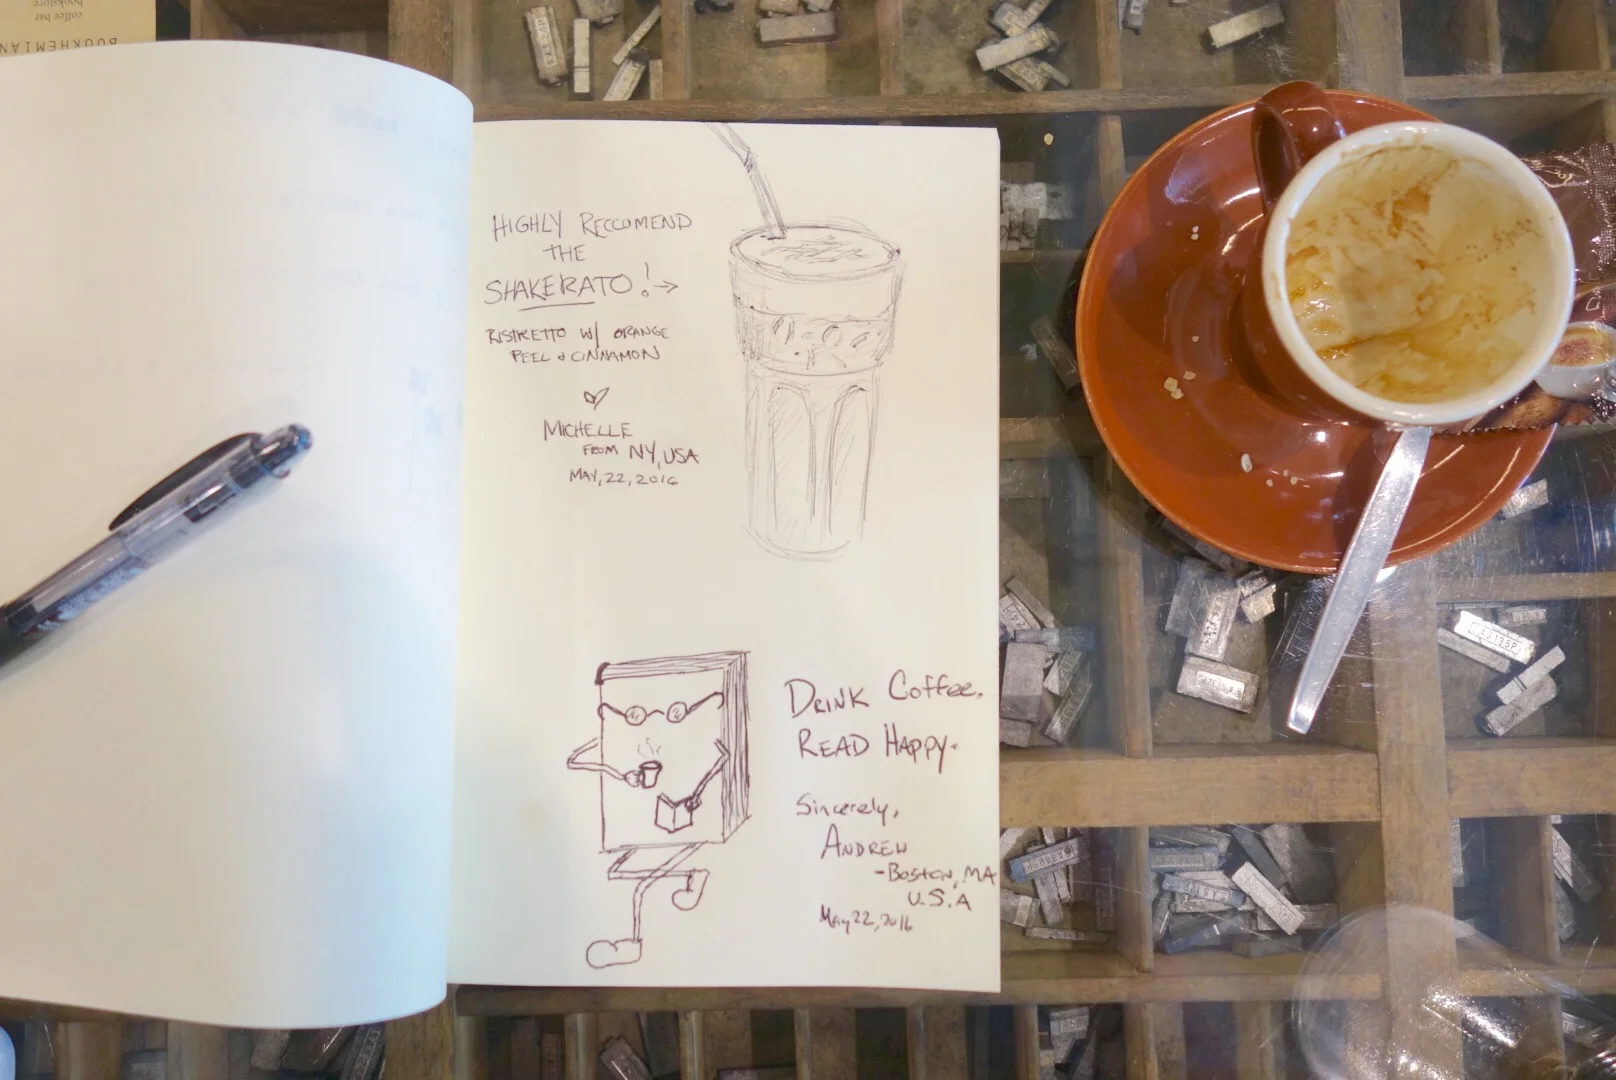 coffee bar
bookstore
BOOKHEMIAN
HIGHLY RECCOMEND
THE
SHAKERATO! →
RISTRETTO W/ ORANGE
PEEL & CINNAMON
MICHELLE
FROM NY, USA
MAY, 22, 2016
DRINK COFFEE.
READ HAPPY.
Sincerely,
ANDREW
- BOSTON, MA
U.S.A
May 22, 2016